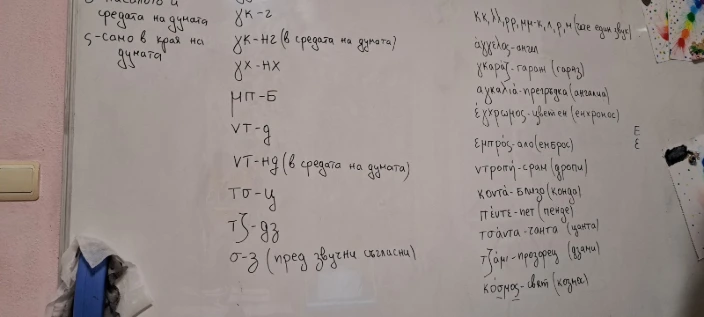 средата на думата
ς-само в края на
думата
γκ-г
γκ-нг (в средата на думата)
γχ-нх
μπ-Б
ντ-д
ντ-нд (в средата на думата)
τσ-ц
τζ-дз
σ-з (пред звучни съгласни)
κκ, λλ, ρρ, μμ-к, л, р, м (
един звук)
άγγελος-ангел
γκαράζ-гараж (гараз)
αγκαλιά-прегръдка (ангалиа)
έγχρωμος-цветен (енхромос)
εμπρός-ало (енброс)
Ε
ε
ντροπή-срам (дропи)
κοντά-близо (конда)
πέντε-пет (пенде)
τσάντα-чанта (цанта)
τζάμι-прозорец (дзами)
κόσμος-свят (козмос)